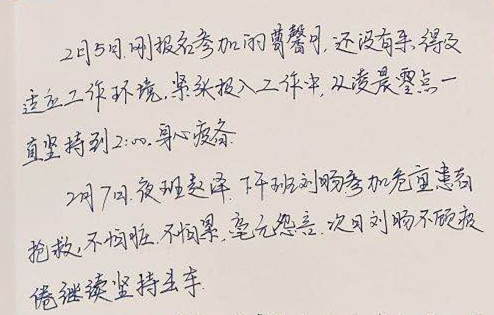 2月5日.刚报名参加的曹馨月,还没有来得及
适应工作环境,紧张投入工作中,从凌晨零点一
直坚持到2:00.身心疲备.
2月7日.夜班赵泽,下午班刘旸参加危重患者
抢救,不怕脏.不怕累.毫无怨言.次日刘旸不顾疲
倦继续坚持出车.